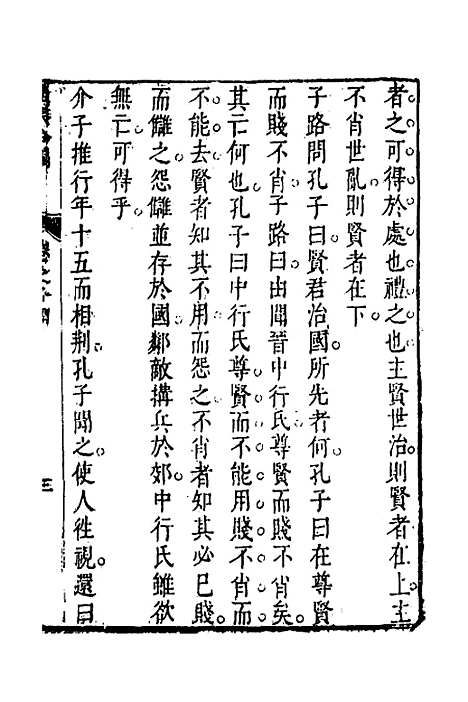 者之可得於處也禮之也主賢世治則賢者在上主
不肖世亂則賢者在下
子路問孔子曰賢君治國所先者何孔子曰在尊賢
而賤不肖子路曰由聞晉中行氏尊賢而賤不肖矣
其亡何也孔子曰中行氏尊賢而不能用賤不肖而
不能去賢者知其不用而怨之不肖者知其必已賤
而讎之怨讎並存於國鄰敵搆兵於郊中行氏雖欲
無亡可得乎
介子推行年十五而相荆孔子聞之使人徃視還曰
三